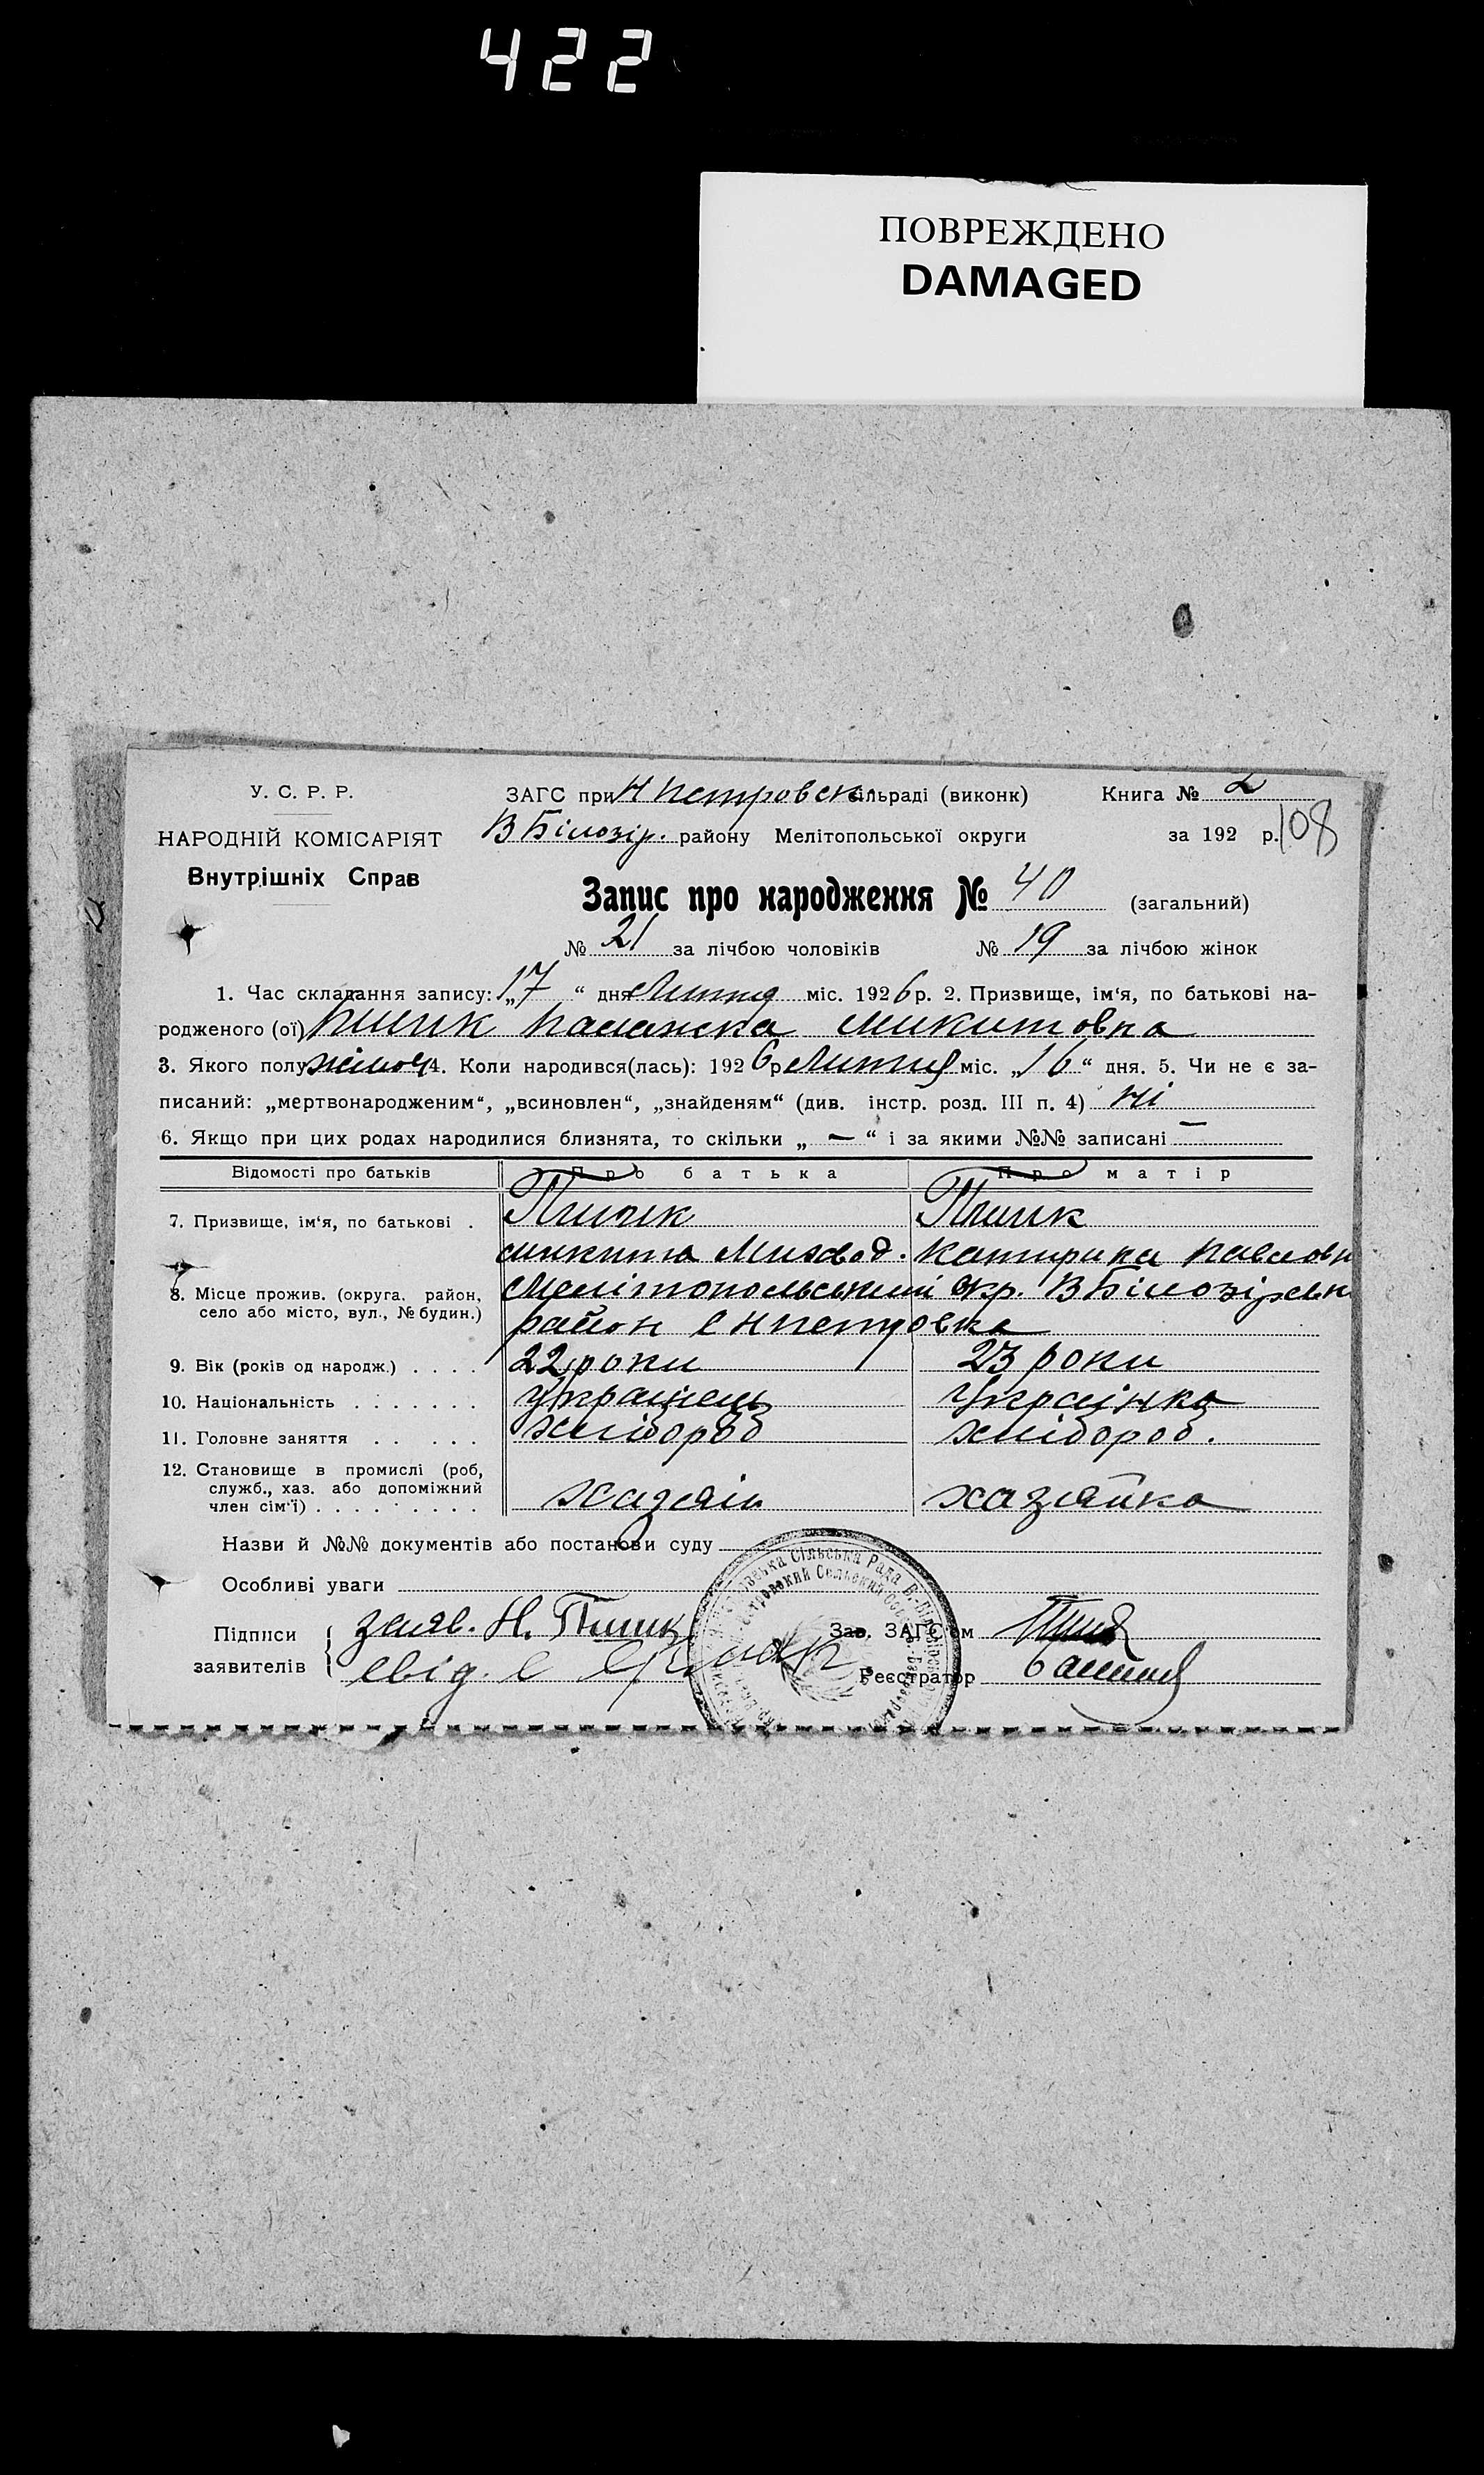 422
ПОВРЕЖДЕНО
DAMAGED
У. С. Р. Р.
НАРОДНІЙ КОМІСАРІЯТ
Внутрішніх Справ
ЗАГС при Н Петровск. сільраді (виконк)
В Білозір. району Мелітопольської округи
Книга № 2
за 192 р. 108
Запис про народження № 40 (загальний)
№ 21 за лічбою чоловіків № 19 за лічбою жінок
1. Час складання запису: „17“ дня Липня міс. 1926 р. 2. Призвище, ім‘я, по батькові на-
родженого (ої) Пшик Палажка Микитовна
3. Якого полу жіноч 4. Коли народився(лась): 1926 р Липня міс. „16“ дня. 5. Чи не є за-
писаний: „мертвонародженим“, „всиновлен“, „знайденям“ (див. інстр. розд. III п. 4) ні
6. Якщо при цих родах народилися близнята, то скільки „ — “ і за якими №№ записані —
Відомості про батьків Про батька Про матір
7. Призвище, ім‘я, по батькові . Пшик Пшик
Микита Катирина Павловн
8. Місце прожив. (округа, район, село або місто, вул., № будин.) Мелітопольський окр. В Білозірськ
район с Нпетровка
9. Вік (років од народж.) . . . . 22 роки 23 роки
10. Національність . . . . . . . Українець Українка
11. Головне заняття . . . . . хлібороб хлібороб.
12. Становище в промислі (роб, служб., хаз. або допоміжний член сім‘ї) . . . . . . . . . хазяін хазяйка
Назви й №№ документів або постанови суду
Особливі уваги
Підписи заявителів { заяв. Н. Пшик
свід. С
Зав. ЗАГС‘ом
Реєстратор